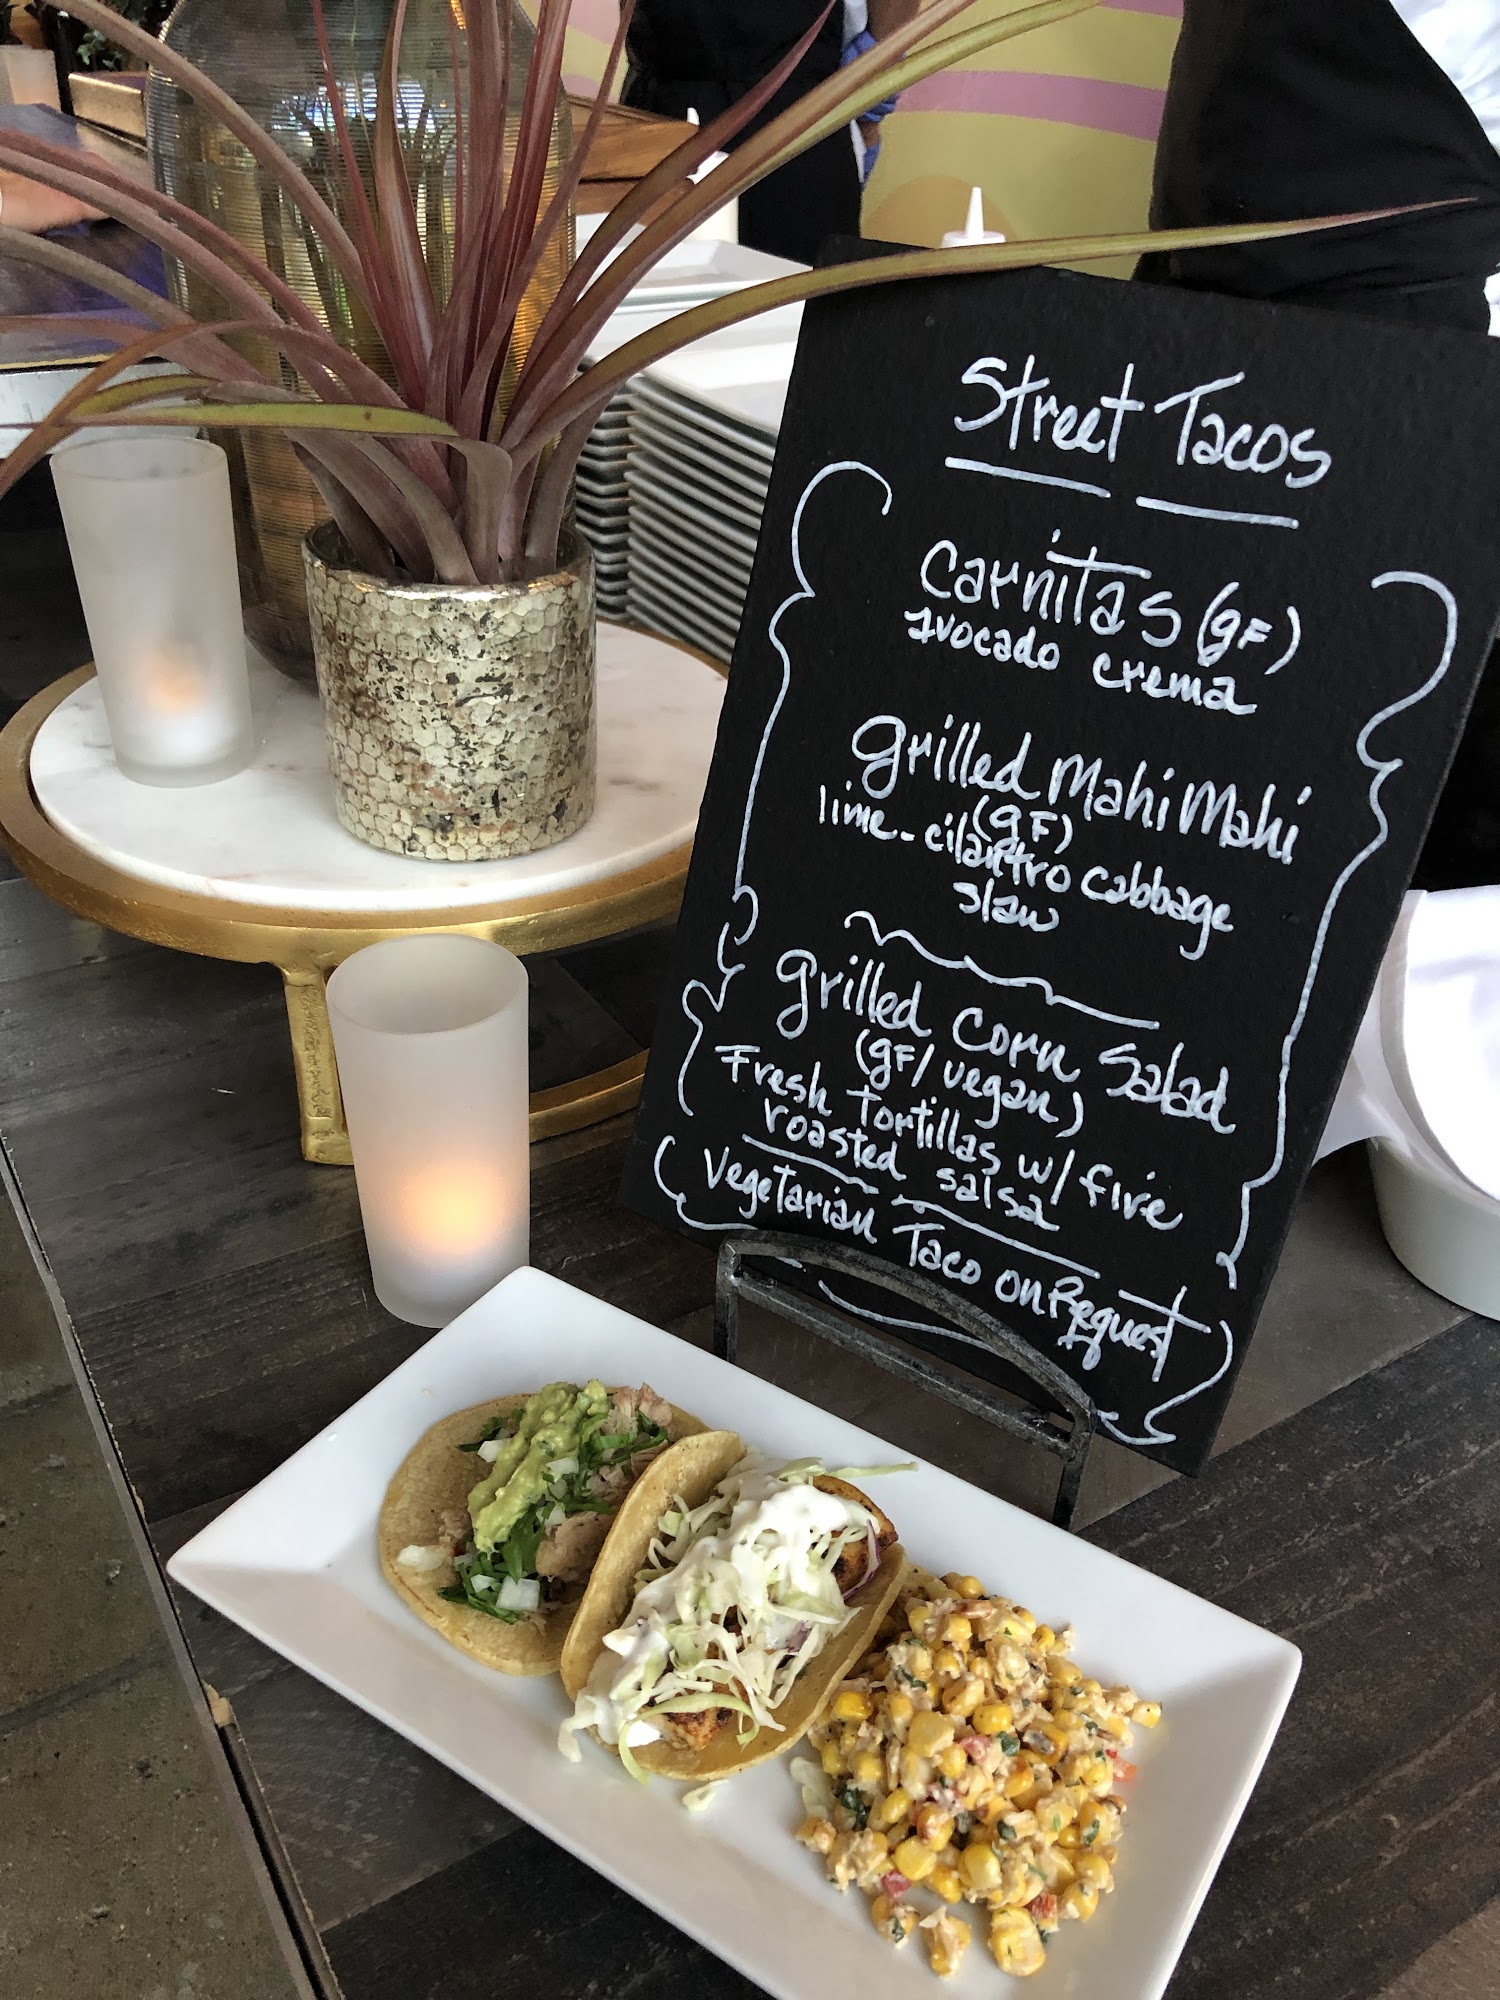 Street Tacos
Carnitas (gF)
avocado crema
grilled Mahi Mahi
(gF)
lime-cilantro cabbage
slaw
grilled corn Salad
(gF/vegan)
Fresh Tortillas w/ fire
roasted salsa
Vegetarian Taco on Request